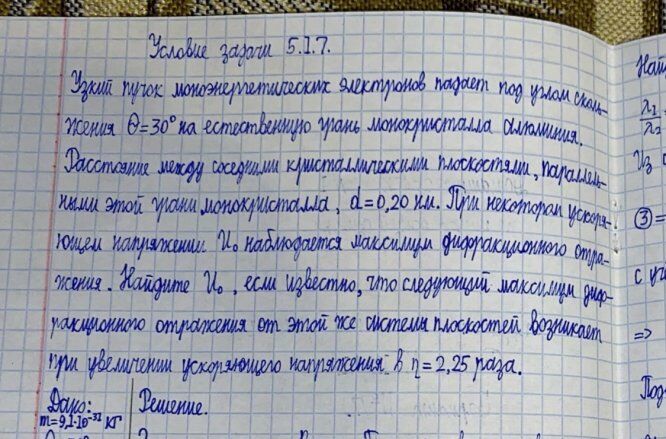 Условие задачи 5.I.7.
Узкий пучок моноэнергетических электронов падает под углом сколь-
жения θ=30° на естественную грань монокристалла алюминия.
Расстояние между соседними кристаллическими плоскостями, параллель-
ными этой грани монокристалла, d=0,20 нм. При некотором ускоря-
ющем напряжении U₀ наблюдается максимум дифракционного отра-
жения. Найдите U₀, если известно, что следующий максимум диф-
ракционного отражения от этой же системы плоскостей возникает
при увеличении ускоряющего напряжения в η=2,25 раза.
Дано: Решение.
m=9,1·10⁻³¹ кг
Най
λ₁
λ₂
Из
③=
с уг
=>
Под